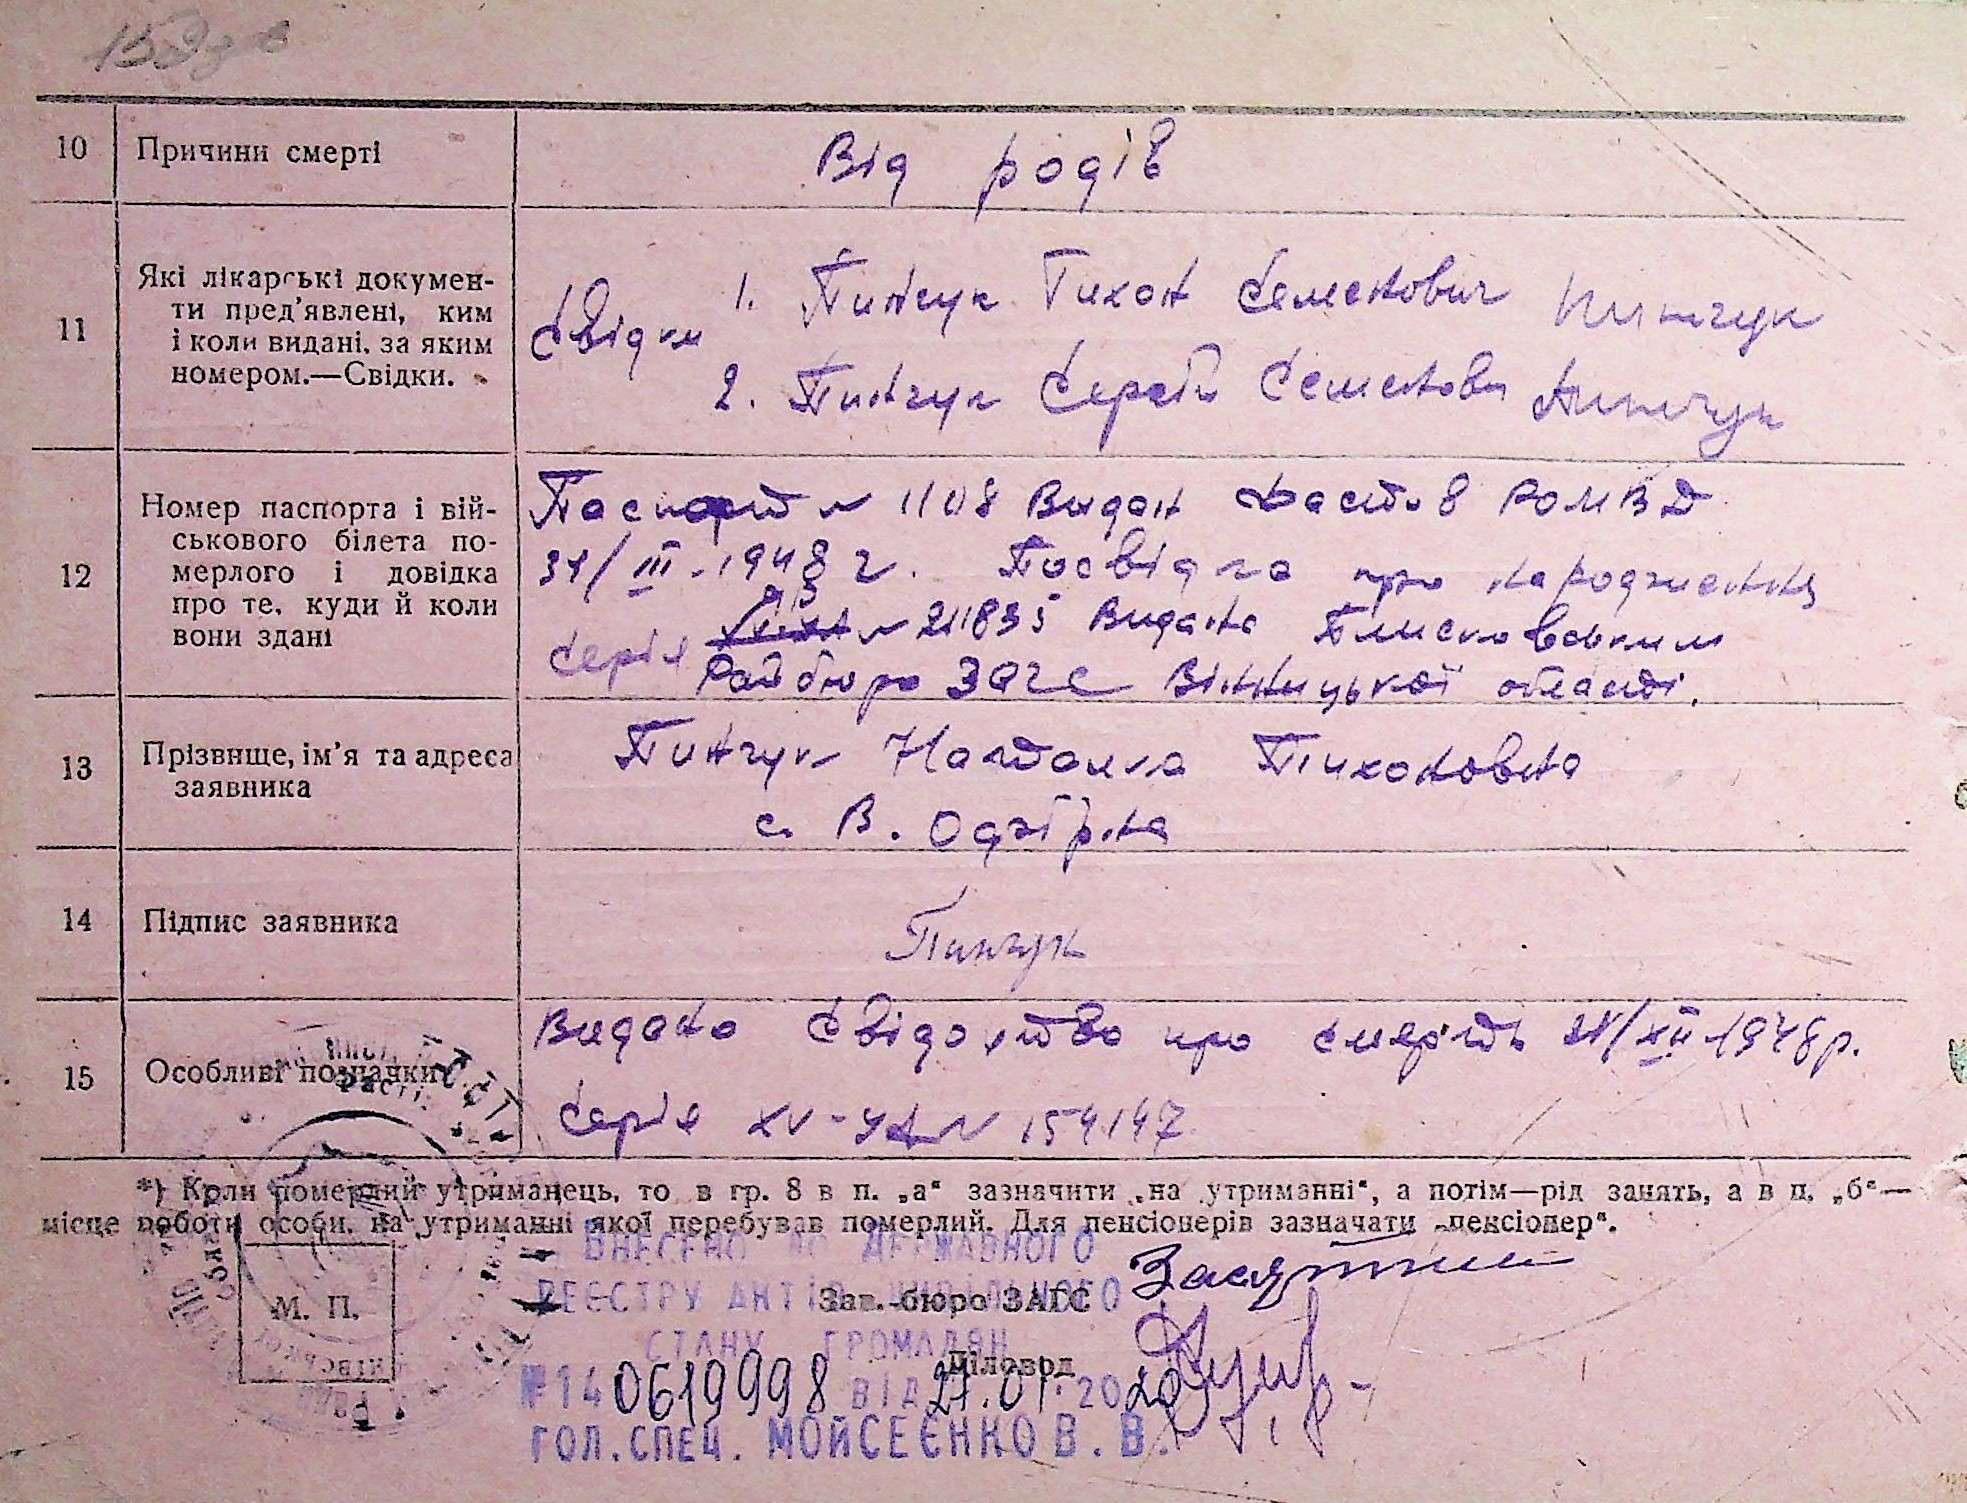 10 Причини смерті Від родів
11 Які лікарські докумен-
ти пред'явлені, ким
і коли видані, за яким
номером.—Свідки.
Свідки 1. Пинчук Тихон Семенович Пинчук
2. Пинчук Сергій Семенович Пинчук
12 Номер паспорта і вій-
ськового білета по-
мерлого і довідка
про те, куди й коли
вони здані
Паспорт № 1108 Видан Фастов РОМВД
31/III-1948 г. Посвідка про народження
Серія № 211835 Видана Плисковським
Райбюро ЗАГС Вінницької області.
13 Прізвище, ім'я та адреса
заявника
Пинчук Наталка Тихоновна
с. В. Офірна
14 Підпис заявника Пинчук
15 Особливі помітки
Видано Свідоцтво про смерть 21/XII-1948 р.
Серія XV-УА № 154147
*) Коли померлий утриманець, то в гр. 8 в п. „а“ зазначити „на утриманні“, а потім—рід занять, а в п. „б“—
місце роботи особи, на утриманні якої перебував померлий. Для пенсіонерів зазначати „пенсіонер“.
М. П.
Зав. бюро ЗАГС
Діловод
ВНЕСЕНО ДО ДЕРЖАВНОГО
РЕЄСТРУ АКТІВ ЦИВІЛЬНОГО
СТАНУ ГРОМАДЯН
№ 140619998 ВІД 27.01.2020
ГОЛ.СПЕЦ. МОЙСЕЄНКО В.В.